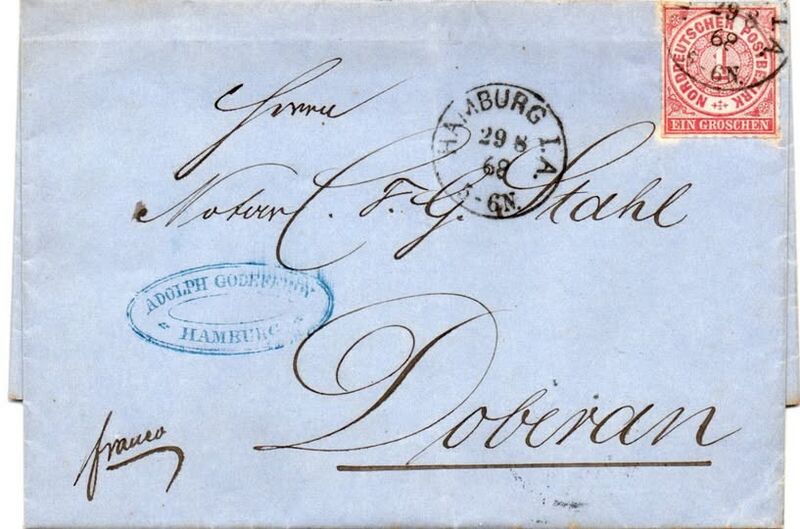 NORDDEUTSCHER POSTBEZIRK
1
EIN GROSCHEN
29 8
68
6N.
I.A.
HAMBURG I.A.
29 8
68
5-6N.
Herrn
Notar C. F. G. Stahl
ADOLPH GODEFFROY
HAMBURG
Doberan
franco